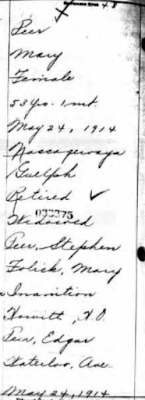 Peer
Mary
Female
53 yrs. 1 mt.
May 24, 1914
Nassagaweya
Guelph
Retired ✓
033375
Widowed
Peer, Stephen
Folick, Mary
Inanition
Howitt, H.O.
Peer, Edgar
Waterloo, Ave.
May 24, 1914